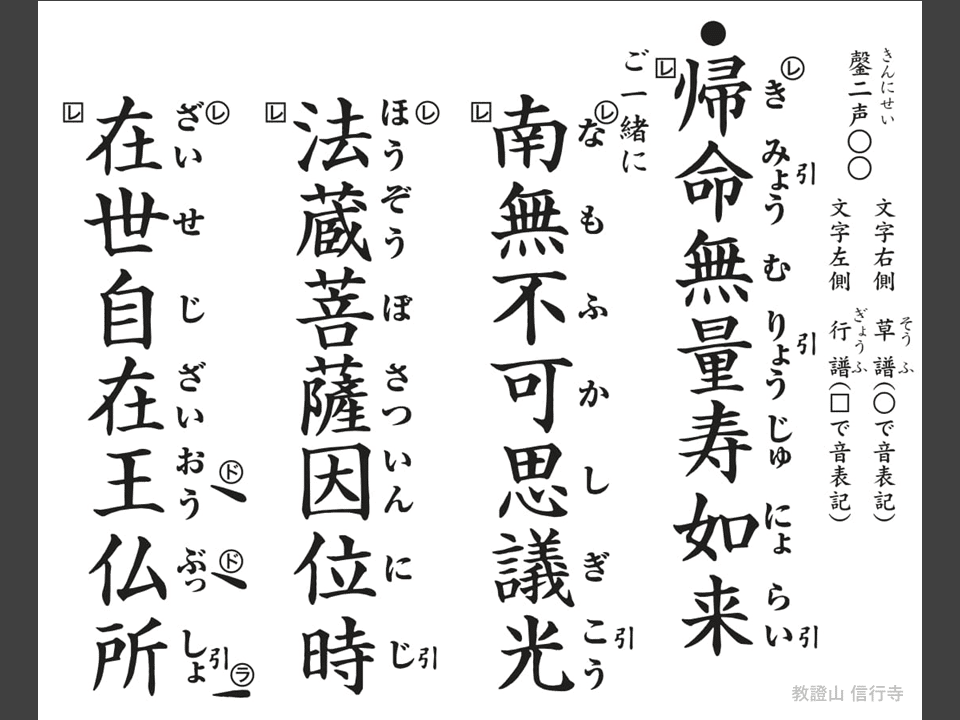 きんにせい
鏧二声〇〇
文字右側 草譜(〇で音表記)
そうふ
文字左側 行譜(□で音表記)
ぎょうふ
●帰命無量寿如来
レ きみょうむりょうじゅにょらい
引 引 引
レ
ご一緒に
南無不可思議光
レ なもふかしぎこう
引
レ
法蔵菩薩因位時
レ ほうぞうぼさついんにじ
引
レ
在世自在王仏所
レ ざいせじざいおうぶっしょ
ド ド 引 ラ
レ
教證山 信行寺